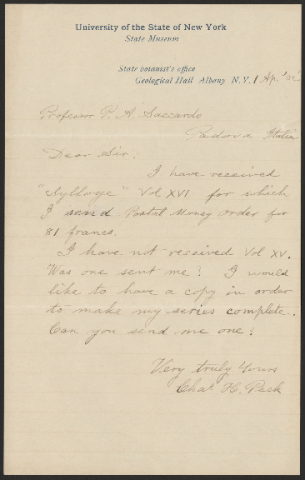 University of the State of New York
State Museum
State botanist's office
Geological Hall Albany N.Y. 1 Ap.
Professor P. A. Saccardo
Padova Italia
Dear Sir:
I have received
"Sylloge" Vol XVI for which
I send Postal Money order for
81 francs.
I have not received Vol XV.
Was one sent me? I would
like to have a copy in order
to make my series complete.
Can you send me one?
Very truly yours
Chas H. Peck